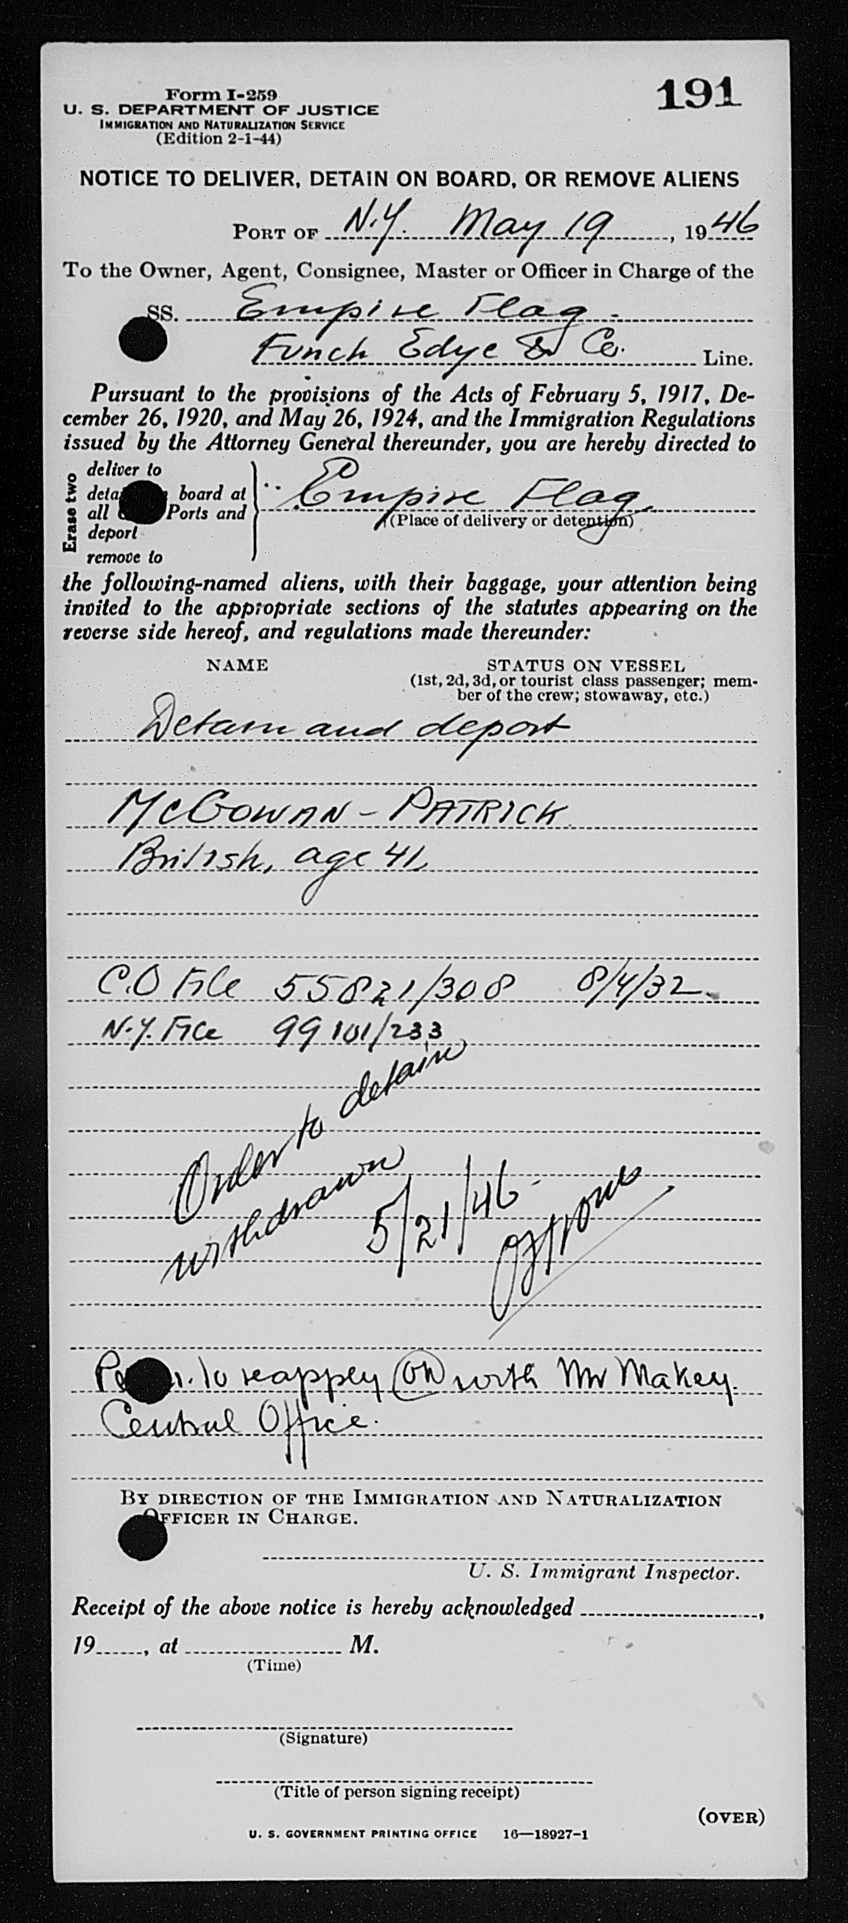 Form I-259
191
U. S. DEPARTMENT OF JUSTICE
IMMIGRATION AND NATURALIZATION SERVICE
(Edition 2-1-44)
NOTICE TO DELIVER, DETAIN ON BOARD, OR REMOVE ALIENS
PORT OF N.Y. May 19, 1946
To the Owner, Agent, Consignee, Master or Officer in Charge of the
SS. Empire Flag
Funch Edye & Co. Line.
Pursuant to the provisions of the Acts of February 5, 1917, De-
cember 26, 1920, and May 26, 1924, and the Immigration Regulations
issued by the Attorney General thereunder, you are hereby directed to
Erase two
deliver to
board at
all Ports and
deport
remove to
Empire Flag
(Place of delivery or detention)
the following-named aliens, with their baggage, your attention being
invited to the appropriate sections of the statutes appearing on the
reverse side hereof, and regulations made thereunder:
NAME STATUS ON VESSEL
(1st, 2d, 3d, or tourist class passenger; mem-
ber of the crew; stowaway, etc.)
Detain and deport
McGOWAN - PATRICK
British, age 41
C.O File 55821/308 8/4/32
N.Y. File 99101/233
Order to detain
withdrawn
5/21/46
to reapply OK with Mr Makey.
Central Office.
BY DIRECTION OF THE IMMIGRATION AND NATURALIZATION
OFFICER IN CHARGE.
U. S. Immigrant Inspector.
Receipt of the above notice is hereby acknowledged ,
19 , at M.
(Time)
(Signature)
(Title of person signing receipt)
(OVER)
U. S. GOVERNMENT PRINTING OFFICE 16—18927-1